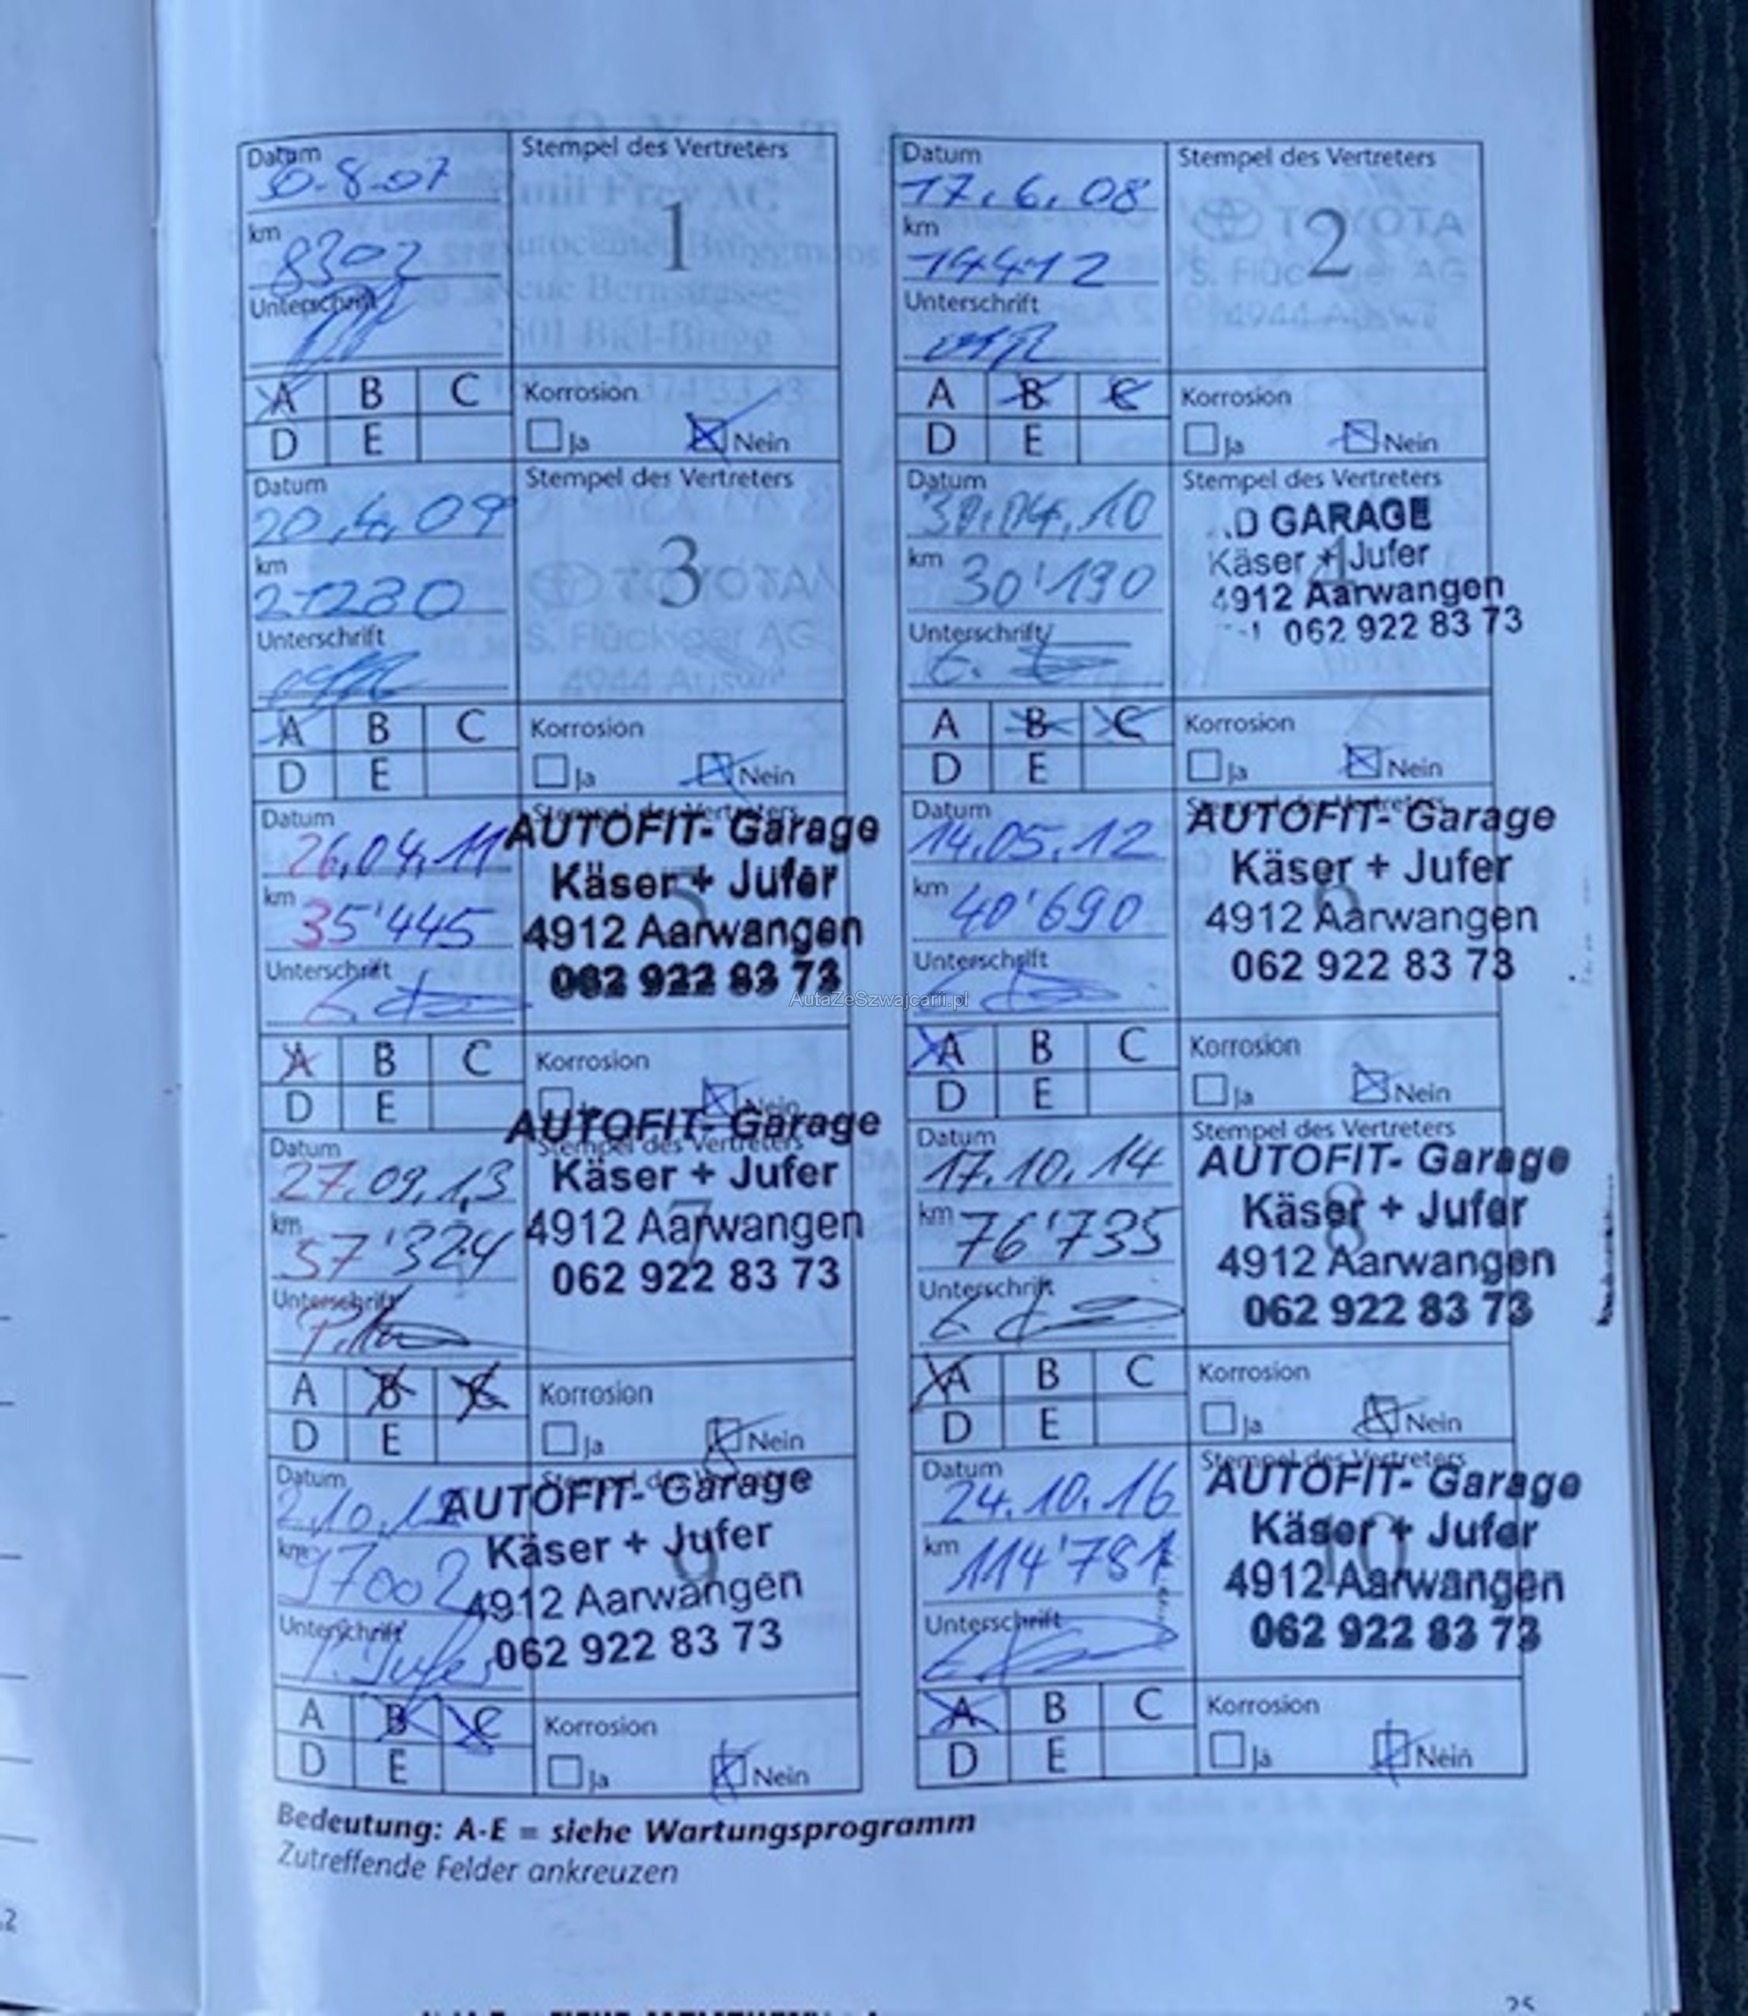 Datum
30.8.07
km
8302
Unterschrift
Stempel des Vertreters
1
A B C
D E
Korrosion
Ja Nein
Datum
17.6.08
km
14412
Unterschrift
Stempel des Vertreters
2
TOYOTA
S. Flückiger AG
A B C
D E
Korrosion
Ja Nein
Datum
20.4.09
km
21230
Unterschrift
Stempel des Vertreters
3
TOYOTA
S. Flückiger AG
4944 Auswil
A B C
D E
Korrosion
Ja Nein
Datum
30.04.10
km
30'190
Unterschrift
Stempel des Vertreters
4
D GARAGE
Käser + Jufer
4912 Aarwangen
062 922 83 73
A B C
D E
Korrosion
Ja Nein
Datum
26.04.11
km
35'445
Unterschrift
Stempel des Vertreters
5
AUTOFIT- Garage
Käser + Jufer
4912 Aarwangen
062 922 83 73
A B C
D E
Korrosion
Nein
Datum
14.05.12
km
40'690
Unterschrift
Stempel des Vertreters
6
AUTOFIT- Garage
Käser + Jufer
4912 Aarwangen
062 922 83 73
A B C
D E
Korrosion
Ja Nein
Datum
27.09.13
km
57'324
Unterschrift
Stempel des Vertreters
7
AUTOFIT- Garage
Käser + Jufer
4912 Aarwangen
062 922 83 73
A B C
D E
Korrosion
Ja Nein
Datum
17.10.14
km
76'735
Unterschrift
Stempel des Vertreters
8
AUTOFIT- Garage
Käser + Jufer
4912 Aarwangen
062 922 83 73
A B C
D E
Korrosion
Ja Nein
Datum
km
97002
Unterschrift
P. Jufer
Stempel des Vertreters
9
AUTOFIT- Garage
Käser + Jufer
4912 Aarwangen
062 922 83 73
A B C
D E
Korrosion
Ja Nein
Datum
24.10.16
km
114'781
Unterschrift
Stempel des Vertreters
10
AUTOFIT- Garage
Käser + Jufer
4912 Aarwangen
062 922 83 73
A B C
D E
Korrosion
Ja Nein
Bedeutung: A-E = siehe Wartungsprogramm
Zutreffende Felder ankreuzen
25
AutaZeSzwajcarii.pl